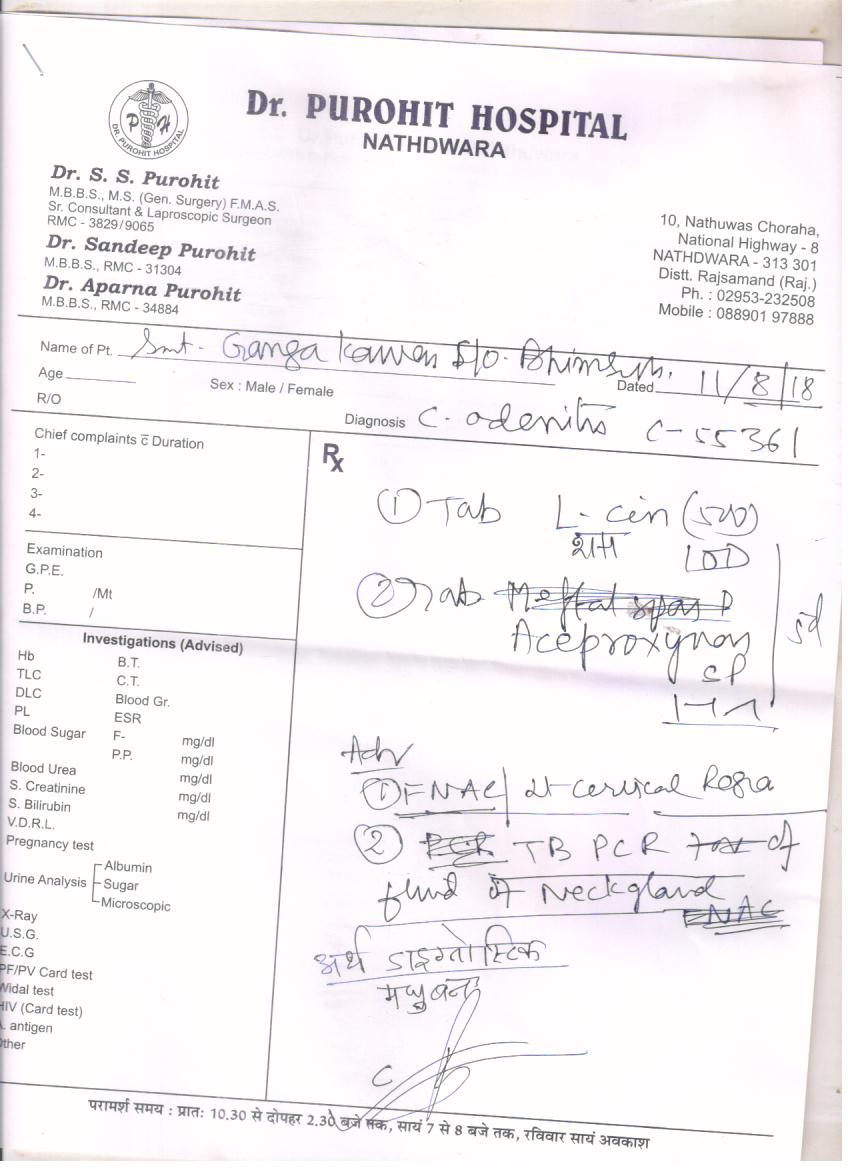 Dr. PUROHIT HOSPITAL
NATHDWARA
P H
DR. PUROHIT HOSPITAL
Dr. S. S. Purohit
M.B.B.S., M.S. (Gen. Surgery) F.M.A.S.
Sr. Consultant & Laproscopic Surgeon
RMC - 3829/9065
Dr. Sandeep Purohit
M.B.B.S., RMC - 31304
Dr. Aparna Purohit
M.B.B.S., RMC - 34884
10, Nathuwas Choraha,
National Highway - 8
NATHDWARA - 313 301
Distt. Rajsamand (Raj.)
Ph. : 02953-232508
Mobile : 088901 97888
Name of Pt. Smt. Ganga
Age
Sex : Male / Female
Dated 11/8/18
R/O
Diagnosis C. adenitis C-55361
Chief complaints c̅ Duration
1-
2-
3-
4-
Examination
G.P.E.
P. /Mt
B.P. /
Investigations (Advised)
Hb B.T.
TLC C.T.
DLC Blood Gr.
PL ESR
Blood Sugar F- mg/dl
P.P. mg/dl
Blood Urea mg/dl
S. Creatinine mg/dl
S. Bilirubin mg/dl
V.D.R.L.
Pregnancy test
Urine Analysis Albumin
Sugar
Microscopic
X-Ray
U.S.G.
E.C.G
PF/PV Card test
Widal test
HIV (Card test)
antigen
Other
Rx
① Tab L-cin (500)
शाम 1OD
② Tab Meftal spas D
Aceproxyvon
SP
1-1
5d
Adv
① FNAC cervical
② PCR TB PCR of
fluid of Neck gland
FNAC
अर्थ डाइग्नोस्टिक
मधुबन
परामर्श समय : प्रातः 10.30 से दोपहर 2.30 बजे तक, सायं 7 से 8 बजे तक, रविवार सायं अवकाश